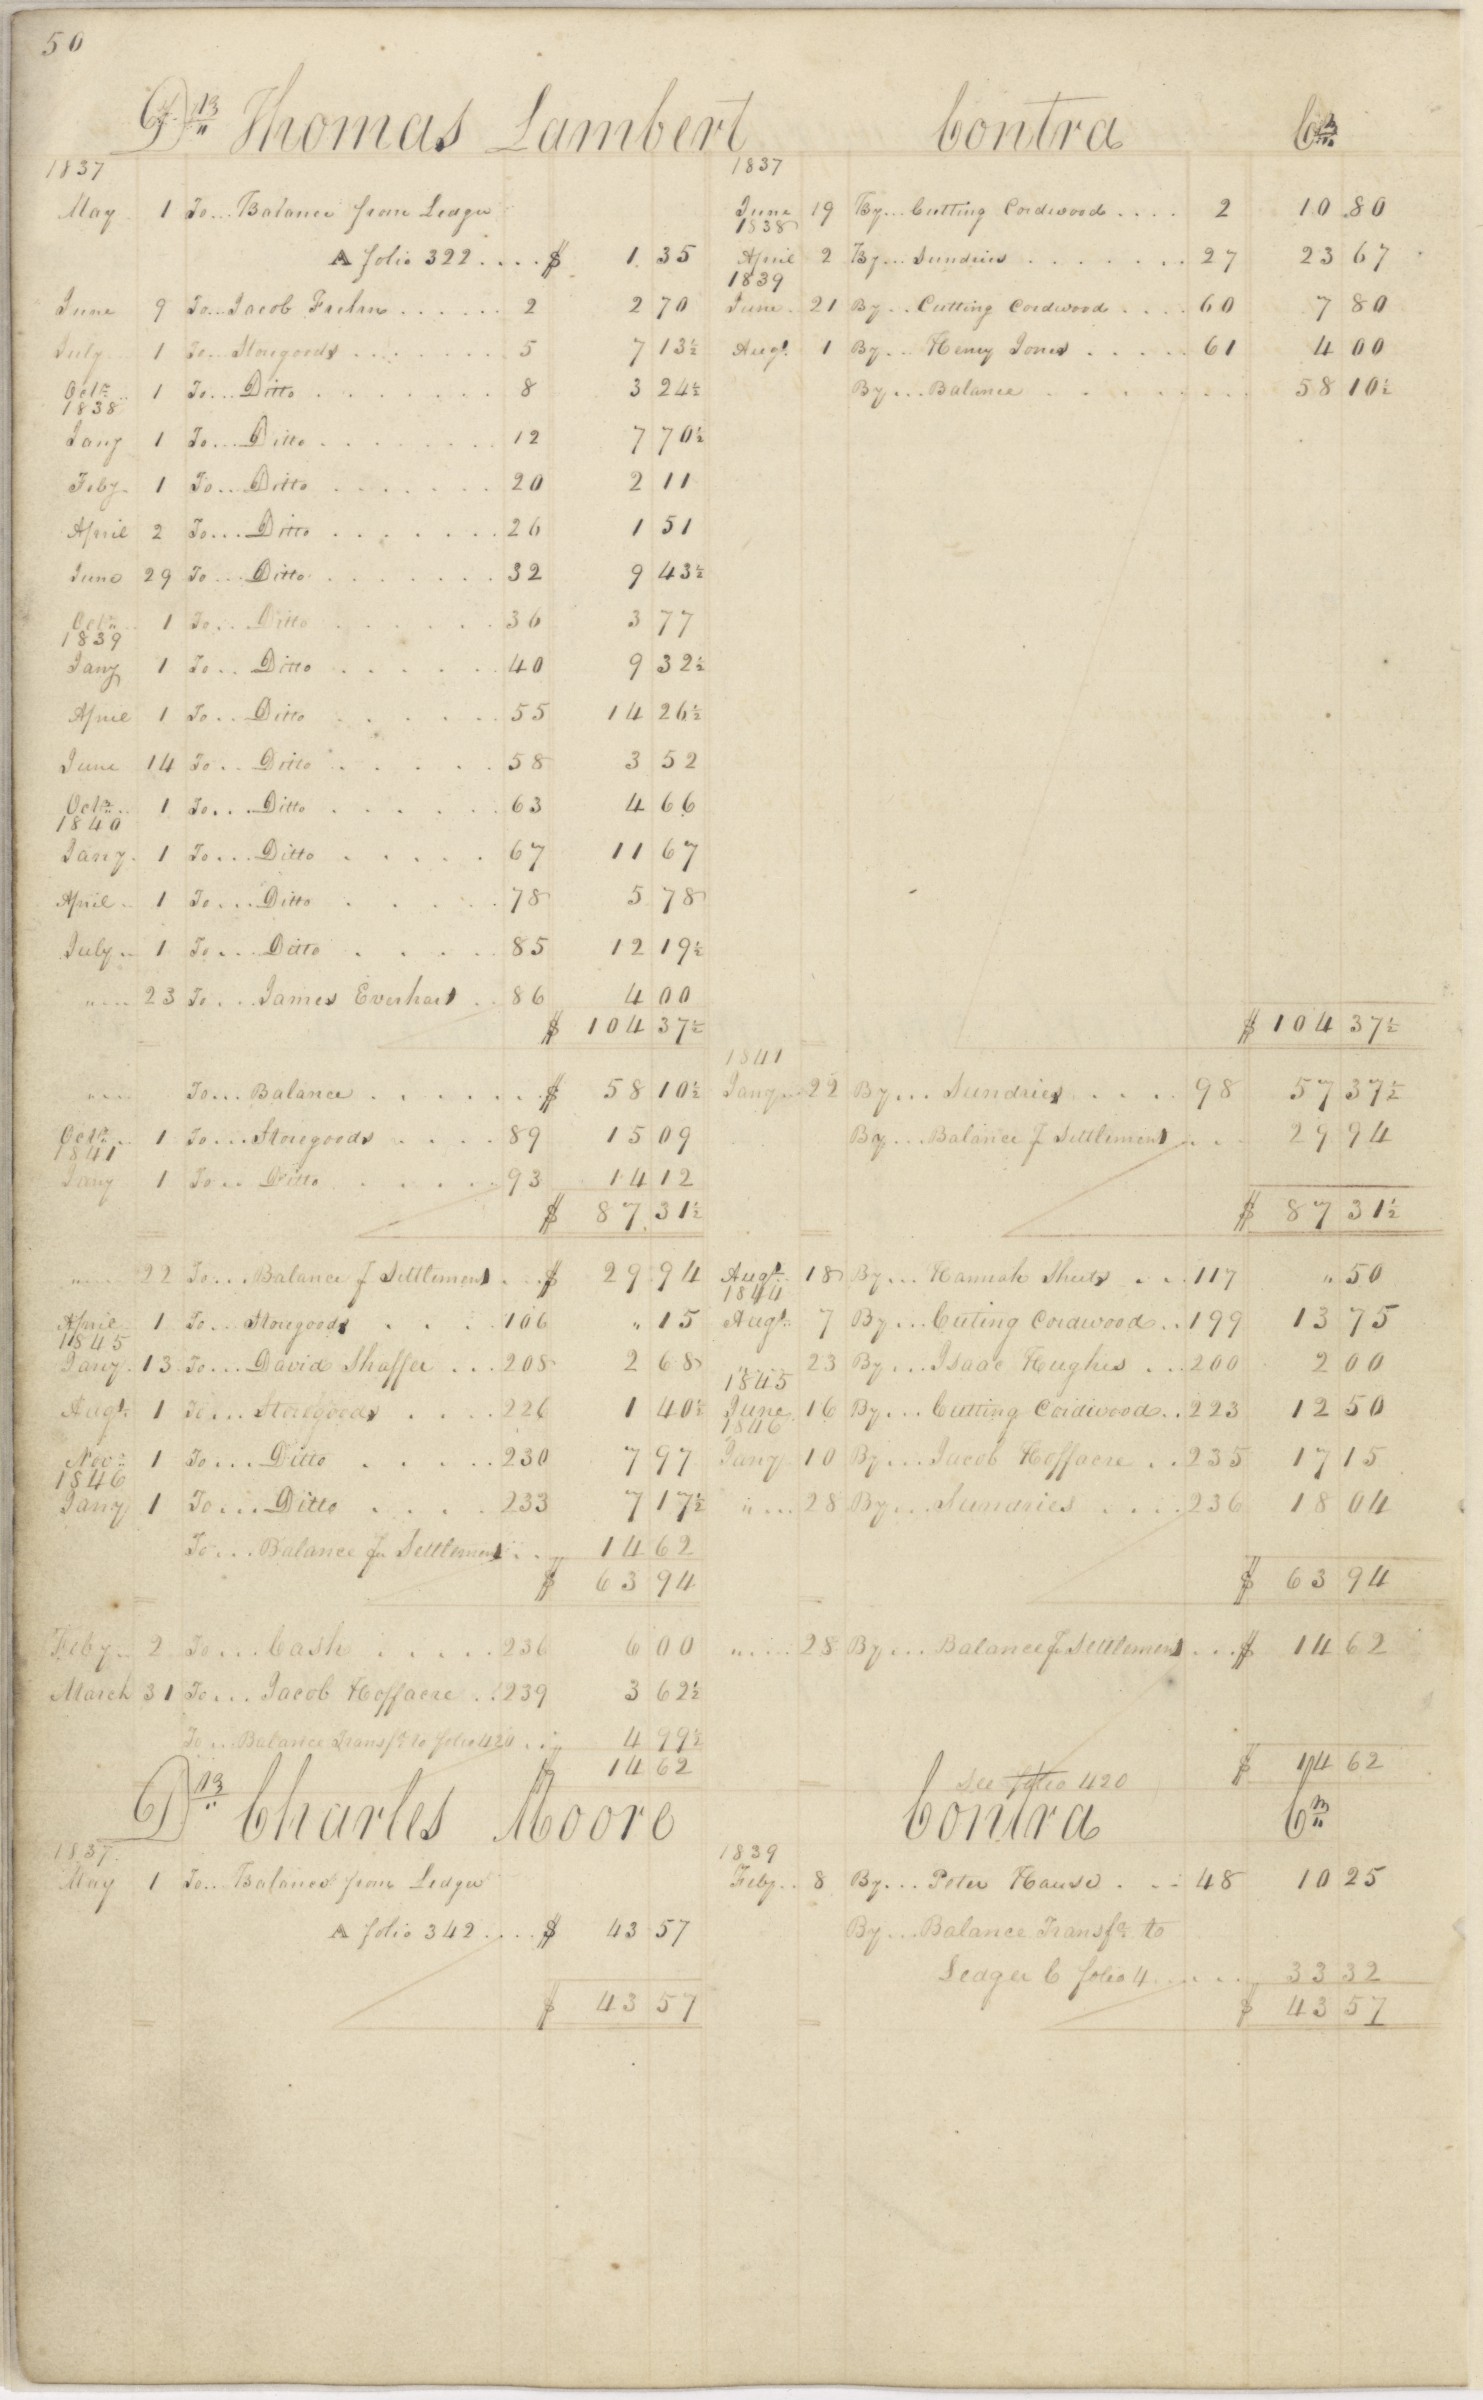 50
Dr Thomas Lambert Contra Cr
1837
May 1 To... Balance from Ledger
A folio 322 .... $ 1 35
June 9 To... Jacob ...... 2 2 70
July 1 To... Storegoods ....... 5 7 13½
Octr 1 To... Ditto ....... 8 3 24½
1838
Jany 1 To... Ditto ....... 12 7 70½
Feby 1 To... Ditto ....... 20 2 11
April 2 To... Ditto ....... 26 1 51
June 29 To... Ditto ....... 32 9 43½
Octr 1 To... Ditto ...... 36 3 77
1839
Jany 1 To... Ditto ...... 40 9 32½
April 1 To... Ditto ...... 55 14 26½
June 14 To... Ditto ..... 58 3 52
Octr 1 To... Ditto ...... 63 4 66
1840
Jany 1 To... Ditto ..... 67 11 67
April 1 To... Ditto ..... 78 5 78
July 1 To... Ditto ..... 85 12 19½
"... 23 To... James Everhart .. 86 4 00
$ 104 37½
".... To... Balance ....... $ 58 10½
Octr 1 To... Storegoods .... 89 15 09
1841
Jany 1 To... Ditto ..... 93 14 12
$ 87 31½
".... 22 To... Balance f Settlement ... $ 29 94
April 1 To... Storegoods .... 106 " 15
1845
Jany 13 To... David Shaffer ... 208 2 68
Augt 1 To... Storegoods .... 226 1 40½
Novr 1 To... Ditto ..... 230 7 97
1846
Jany 1 To... Ditto .... 233 7 17½
To... Balance fr Settlement .. 14 62
$ 63 94
Feby 2 To... Cash ..... 236 6 00
March 31 To... Jacob Hoffacre .. 239 3 62½
To... Balance Transfr to folio 420 ... 4 99½
$ 14 62
1837
June 19 By... Cutting Cordwood .... 2 10 80
1838
April 2 By... Sundries ....... 27 23 67
1839
June 21 By... Cutting Cordwood .... 60 7 80
Augt 1 By... Henry Jones ..... 61 4 00
By... Balance ......... 58 10½
$ 104 37½
1841
Jany 22 By... Sundries .... 98 57 37½
By... Balance f Settlement ... 29 94
$ 87 31½
Augt 18 By... Hannah Sheets ... 117 " 50
1844
Augt 7 By... Cuting Cordwood .. 199 13 75
"... 23 By... Isaac Hughes ... 200 2 00
1845
June 16 By... Cutting Cordwood .. 223 12 50
1846
Jany 10 By... Jacob Hoffacre .. 235 17 15
"... 28 By... Sundries .... 236 18 04
$ 63 94
".... 28 By... Balance fr Settlement ... $ 14 62
See folio 420 $ 14 62
Dr Charles Moore Contra Cr
1837
May 1 To... Balance from Ledger
A folio 342 .... $ 43 57
$ 43 57
1839
Feby 8 By... Peter Hause ... 48 10 25
By... Balance Transfr to
Ledger C folio 4 ..... 33 32
$ 43 57